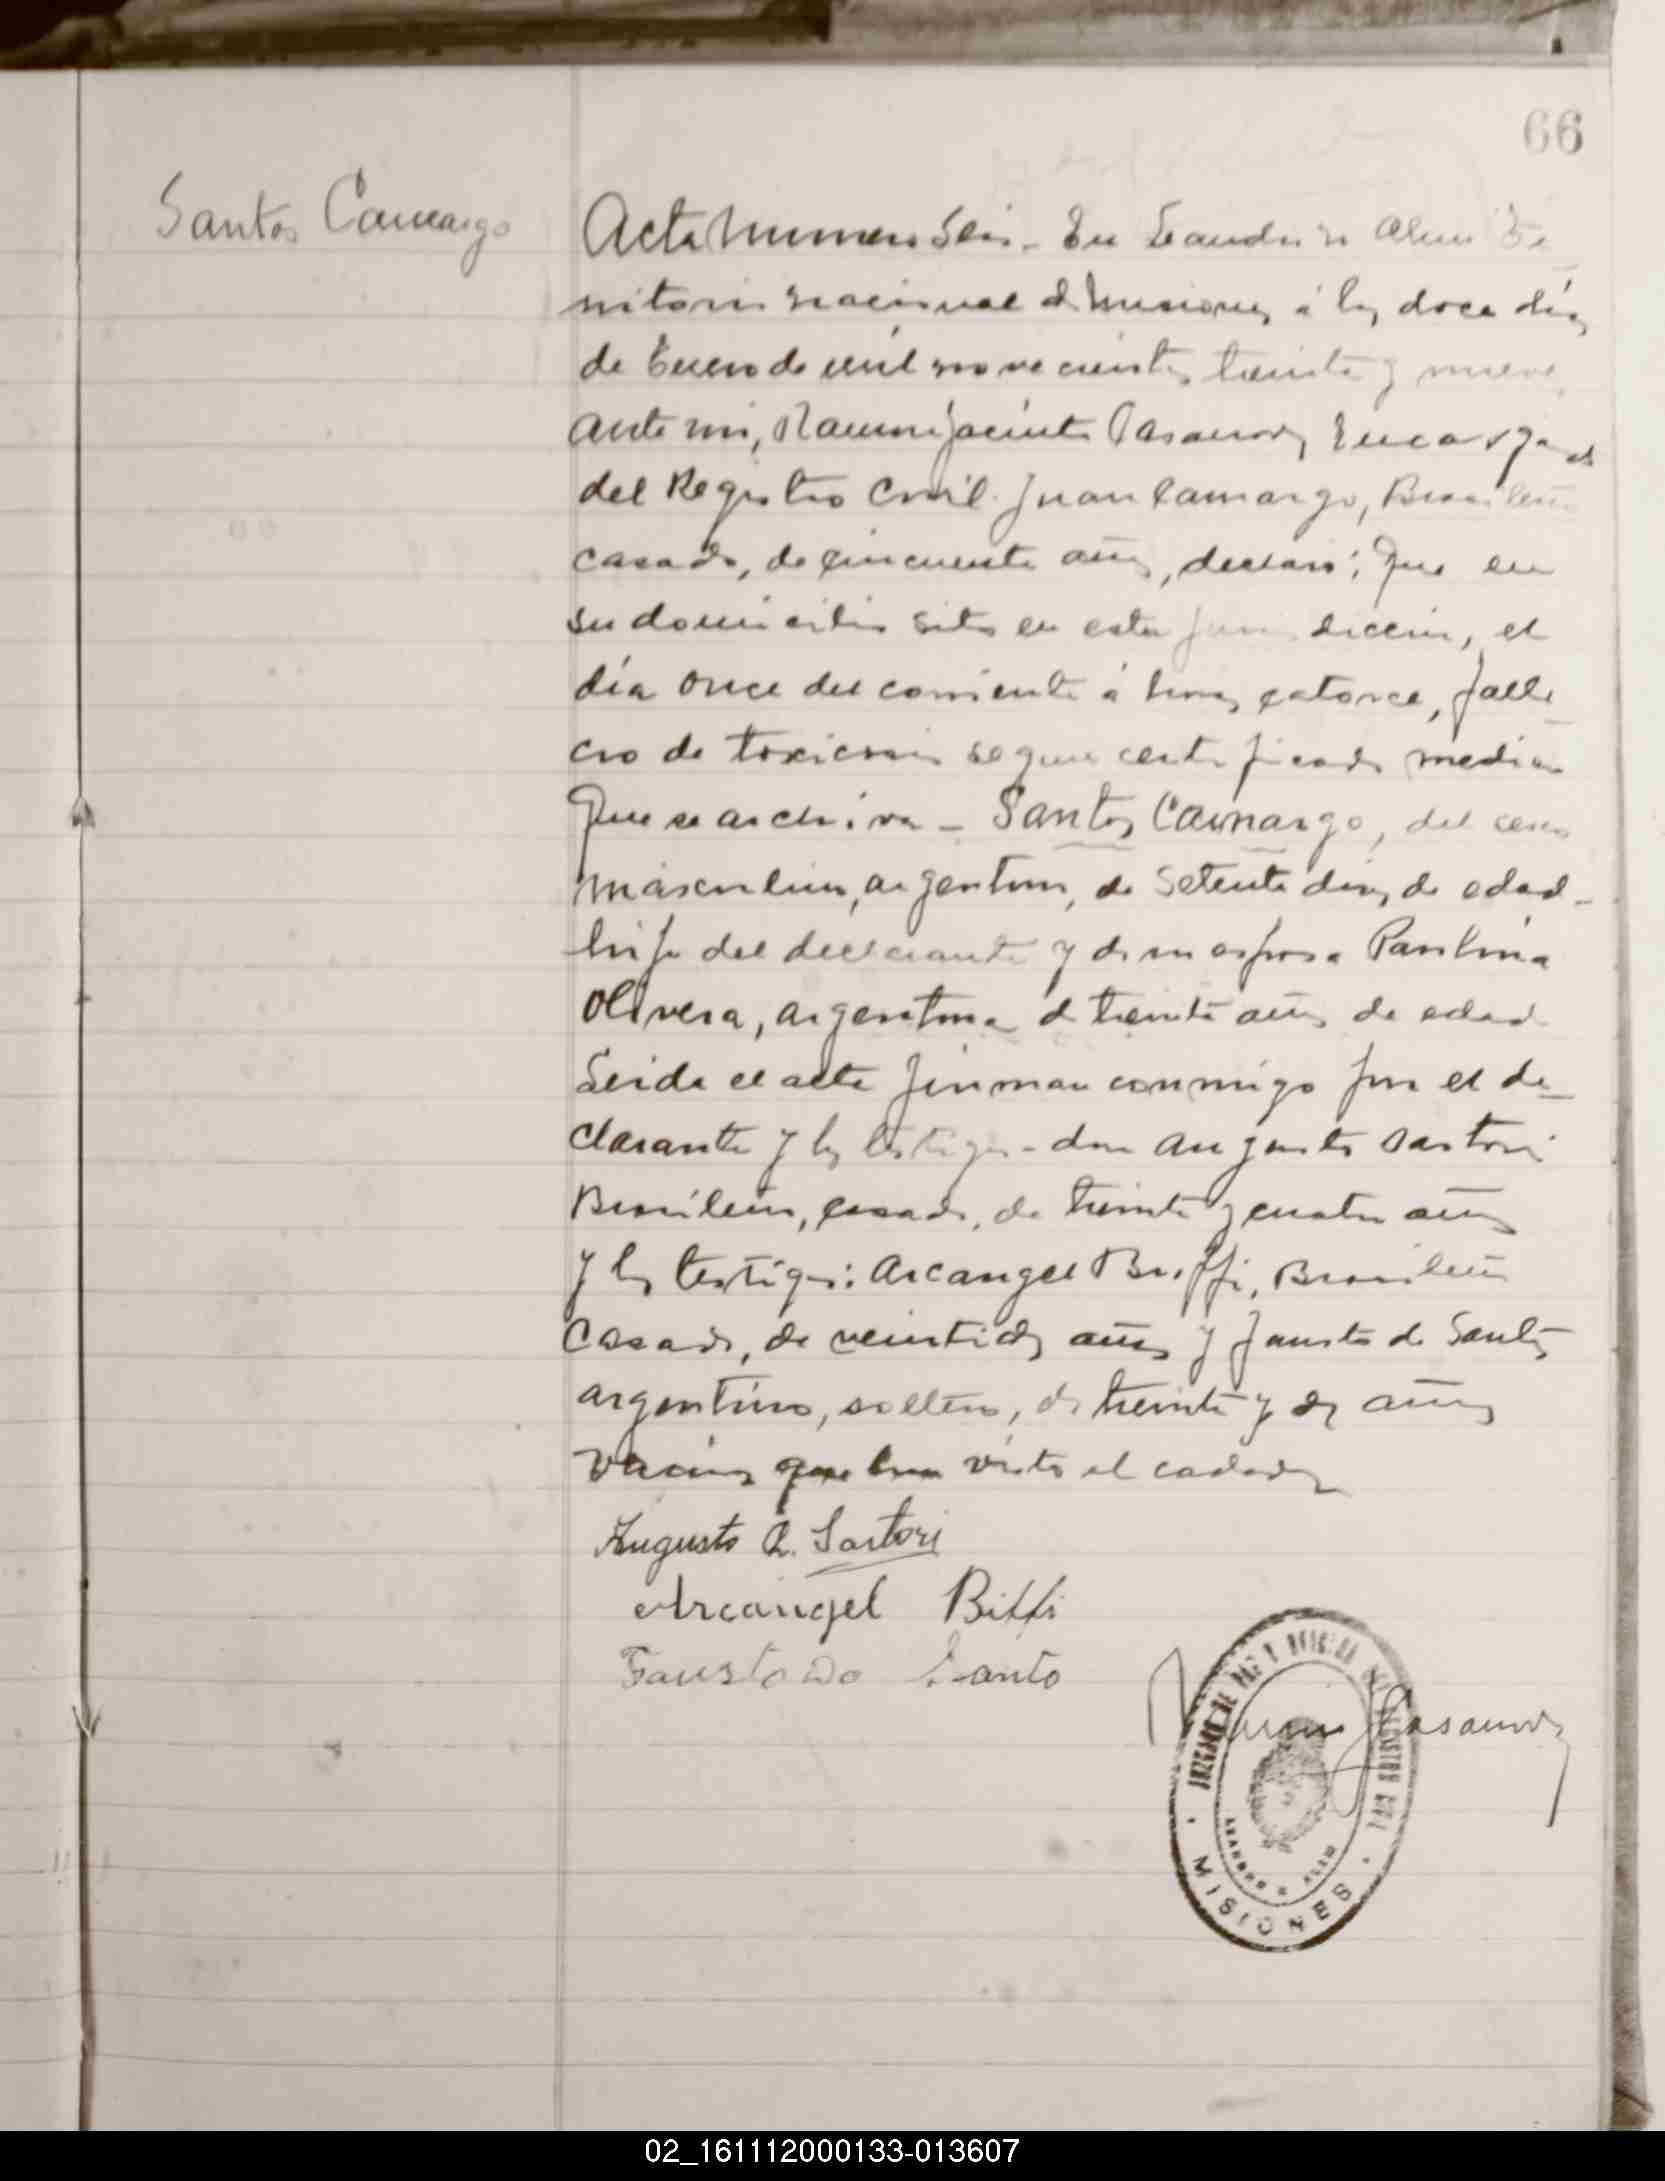 66
Santos Camargo
Acta numero Seis - En Leandro N Alem Te
rritorio nacional de Misiones, á los doce días
de Enero de mil novecientos treinta y nueve,
ante mi, Ramon Jacinto Casanova, Encargado
del Registro Civil. Juan Camargo, Brasilero
casado, de cincuenta años, declaró: Que en
su domicilio sito en esta jurisdiccion, el
día once del corriente á horas catorce, falle
cio de toxicosis segun certificado medico
que se archiva - Santos Camargo, del sexo
masculino, argentino, de setenta dias de edad -
hijo del declarante y de su esposa Paulina
Olivera, argentina de treinta años de edad
Leida el acta firman conmigo por el de
clarante y los testigos - don Augusto Sartori
Brasilero, casado, de treinta y cuatro años
y los testigos: Arcangel Biffi, Brasilero
casado, de veintidos años y Fausto de Santos
argentino, soltero, de treinta y dos años
vecinos que han visto el cadaver
Augusto R. Sartori
Arcangel Biffi
Fausto Do Santo
Ramon J Casanova
JUZGADO DE PAZ Y OFICINA DEL REGISTRO CIVIL
LEANDRO N. ALEM
MISIONES
02_161112000133-013607